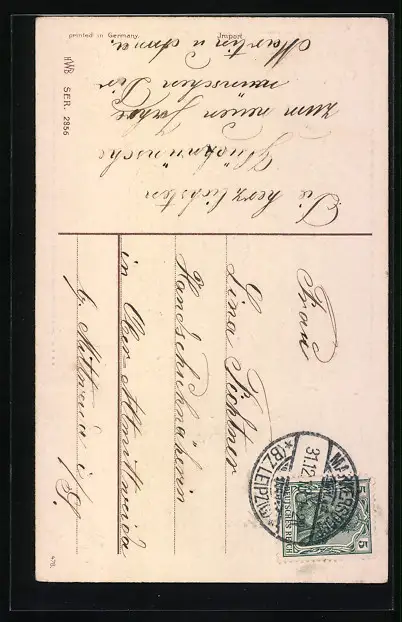 printed in Germany.
Import
HWB
SER. 2856
Die herzlichsten
Glückwünsche
zum neuen Jahre
wünschen Dir
Martin u Anna.
Frau
Lina Fichtner
Handschuhnäherin
in Ober-Altmittweida
b. Mittweida i/S.
MARKERSDORF
31.12
*(BZ. LEIPZIG)*
DEUTSCHES REICH
5
5
478.